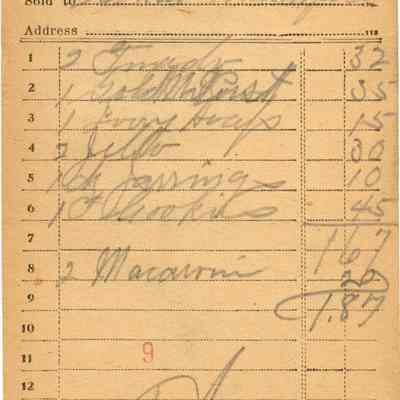 Sold to
Address 113
1 2 32
2 1 Gold M Dust 35
3 1 Ivory Soap 15
4 3 Jello 30
5 1 10
6 1 # Cookies 45
7 1 67
8 2 Macaroni 20
9 1.87
10
11 9
12